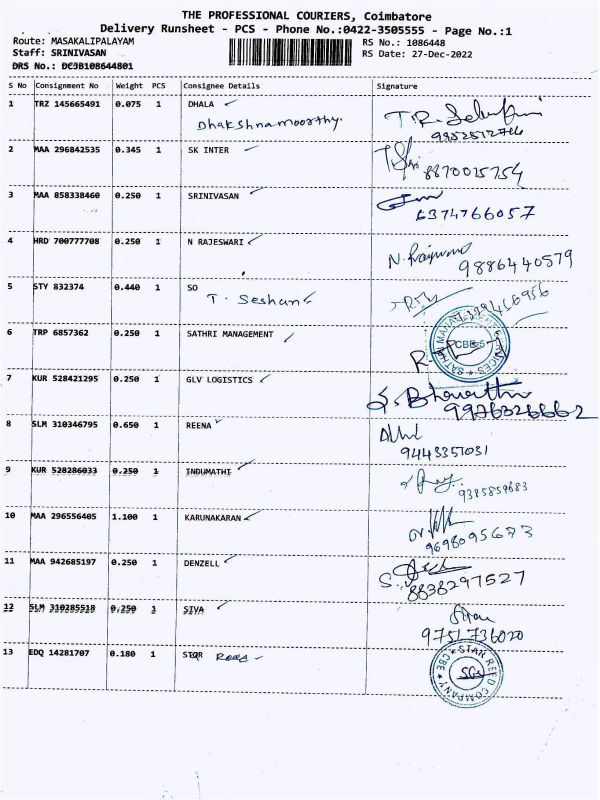 THE PROFESSIONAL COURIERS, Coimbatore
Delivery Runsheet - PCS - Phone No.:0422-3505555 - Page No.:1
Route: MASAKALIPALAYAM RS No.: 1086448
Staff: SRINIVASAN RS Date: 27-Dec-2022
DRS No.: DC3B108644801
S No Consignment No Weight PCS Consignee Details Signature
1 TRZ 145665491 0.075 1 DHALA
Dhakshnamoorthy.
2 MAA 296842535 0.345 1 SK INTER
8870025754
3 MAA 858338460 0.250 1 SRINIVASAN
6374766057
4 HRD 700777708 0.250 1 N RAJESWARI
9886440579
5 STY 832374 0.440 1 SO
T. Seshan
6 TRP 6857362 0.250 1 SATHRI MANAGEMENT
CBE-5
7 KUR 528421295 0.250 1 GLV LOGISTICS
S. Bharathi
9976326662
8 SLM 310346795 0.650 1 REENA
9443351031
9 KUR 528286033 0.250 1 INDUMATHI
9385859683
10 MAA 296556405 1.100 1 KARUNAKARAN
9698095673
11 MAA 942685197 0.250 1 DENZELL
8838297527
12 SLM 310285518 0.250 1 SIVA
9751736020
13 EDQ 14281707 0.180 1 STAR Reed
STAR REED COMPANY CBE